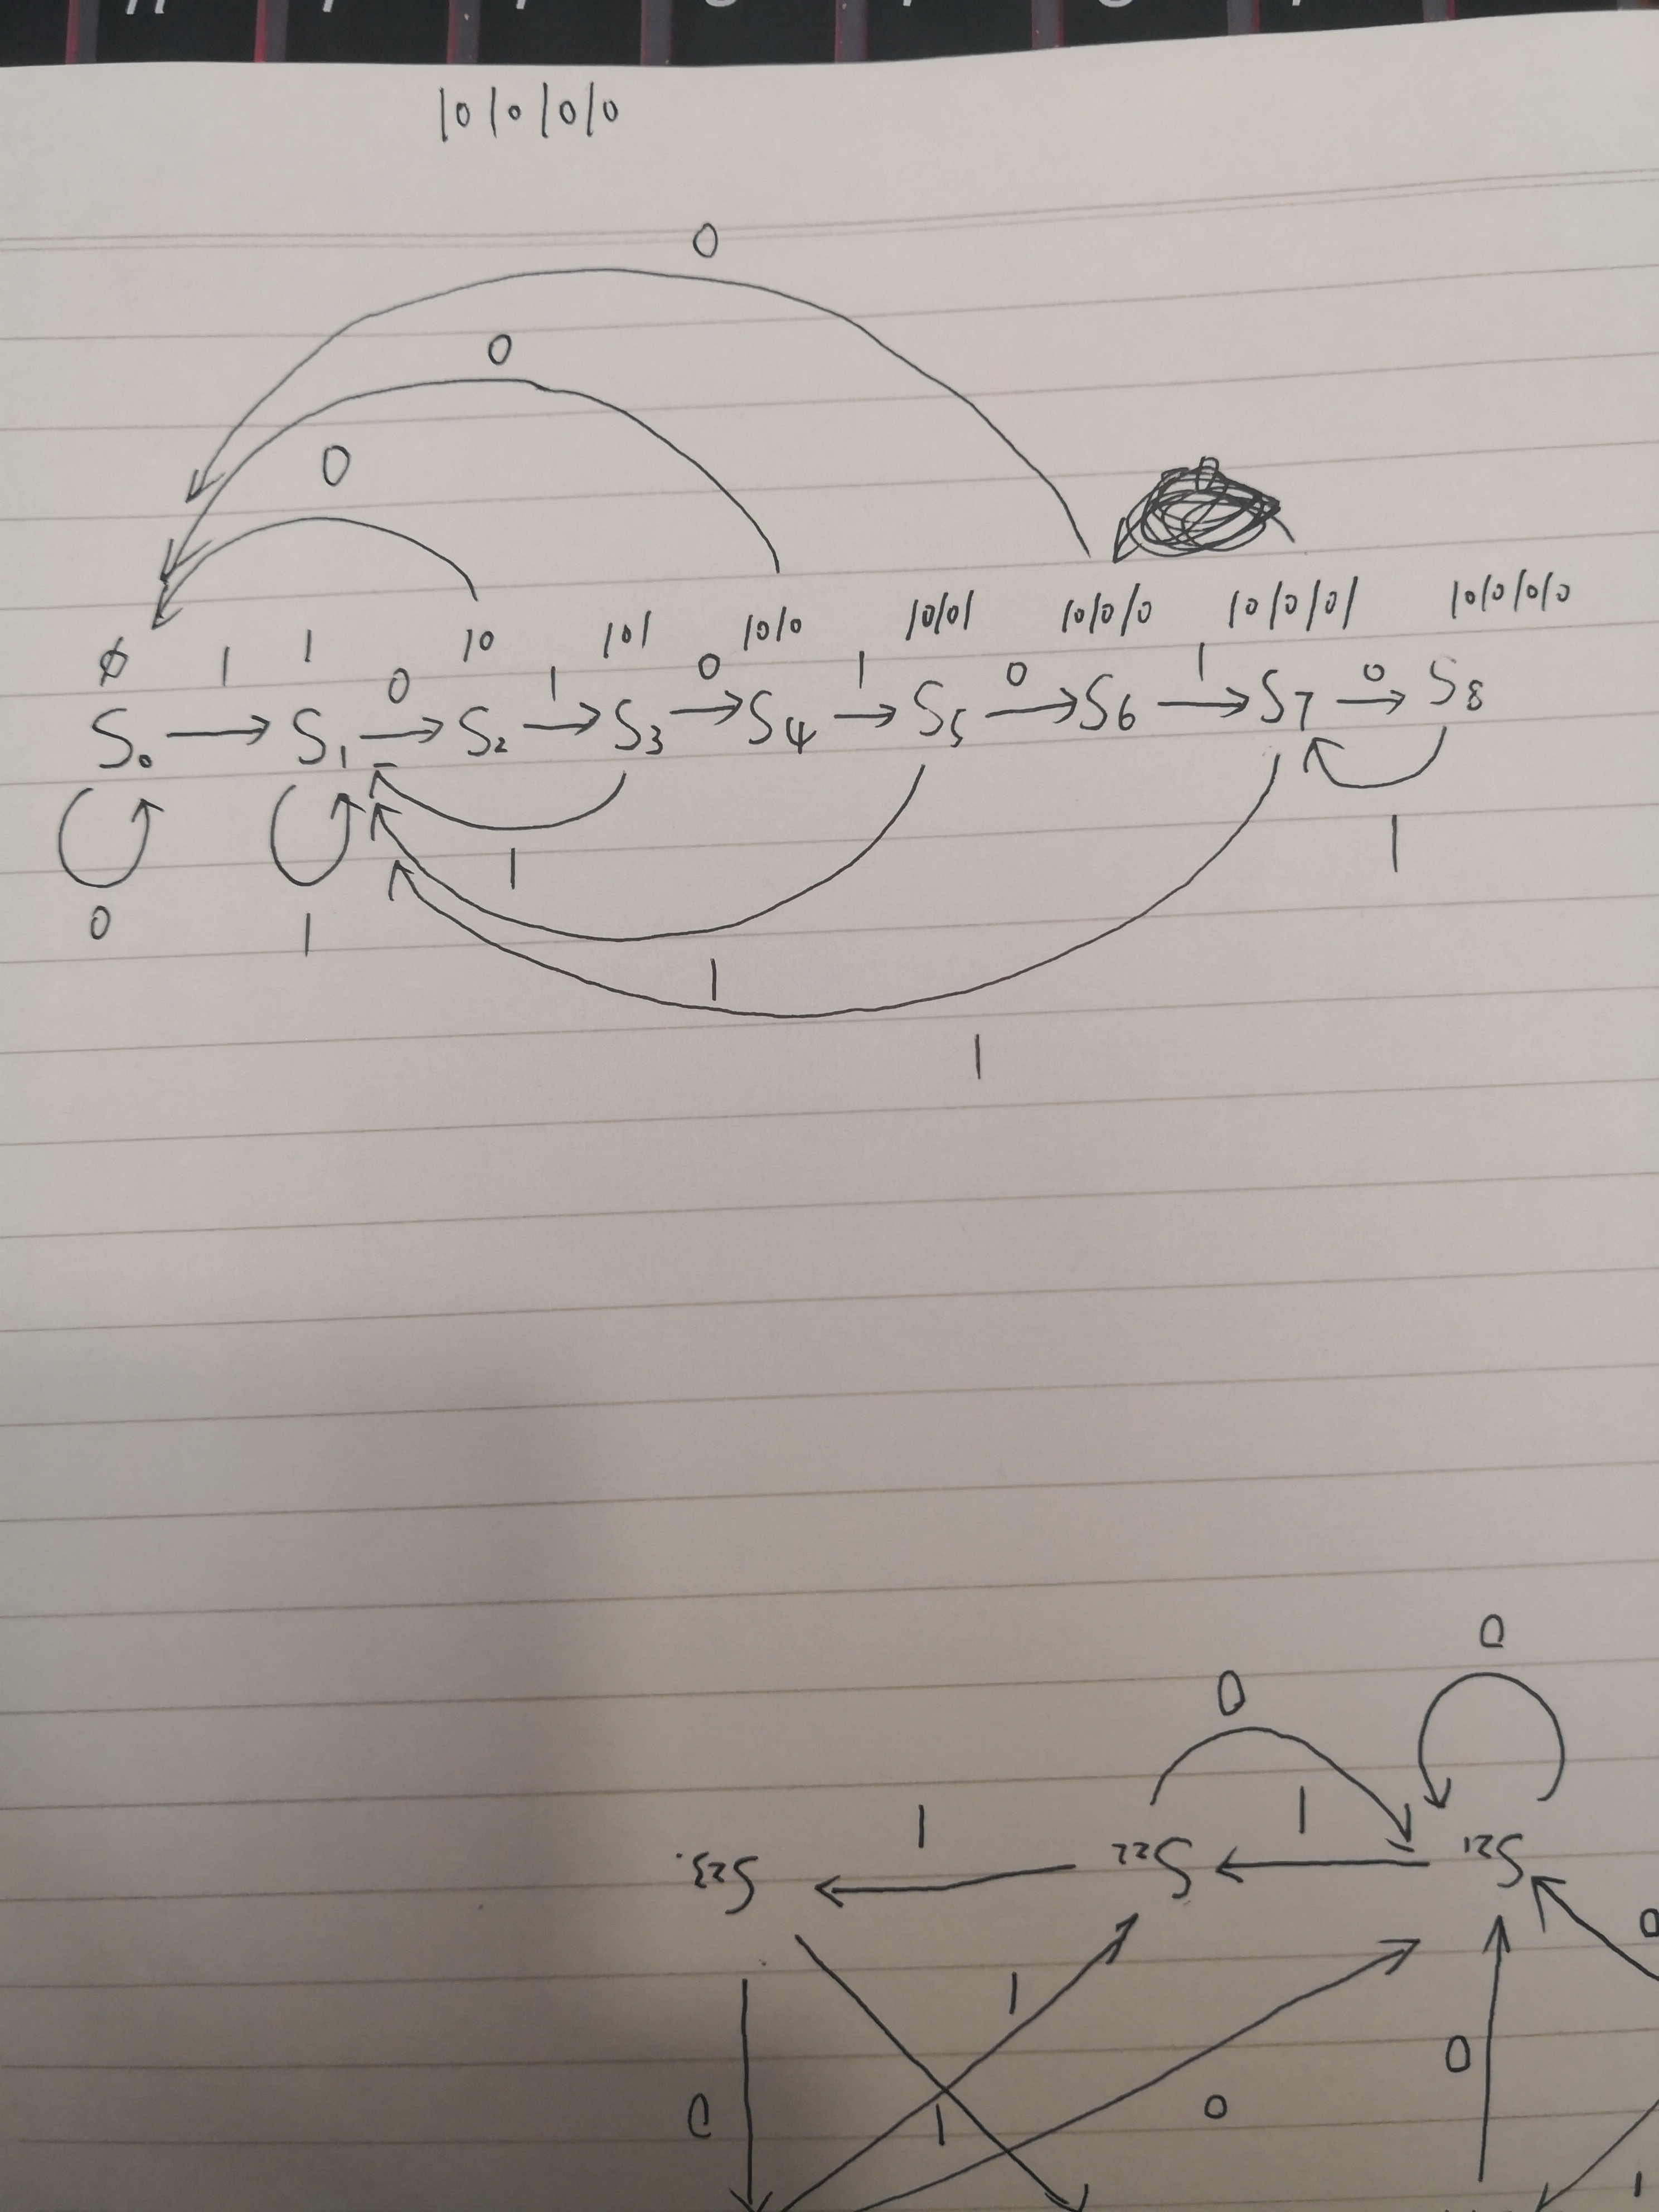 10101010
0
0
0
φ 1 1 0 10 1 101 0 1010 1 10101 0 101010 1 1010101 0 10101010
S0 S1 S2 S3 S4 S5 S6 S7 S8
0 1 1 1 1 1
0
0 1 1
S23 S22 S21
0
1 0
0 1 0
1